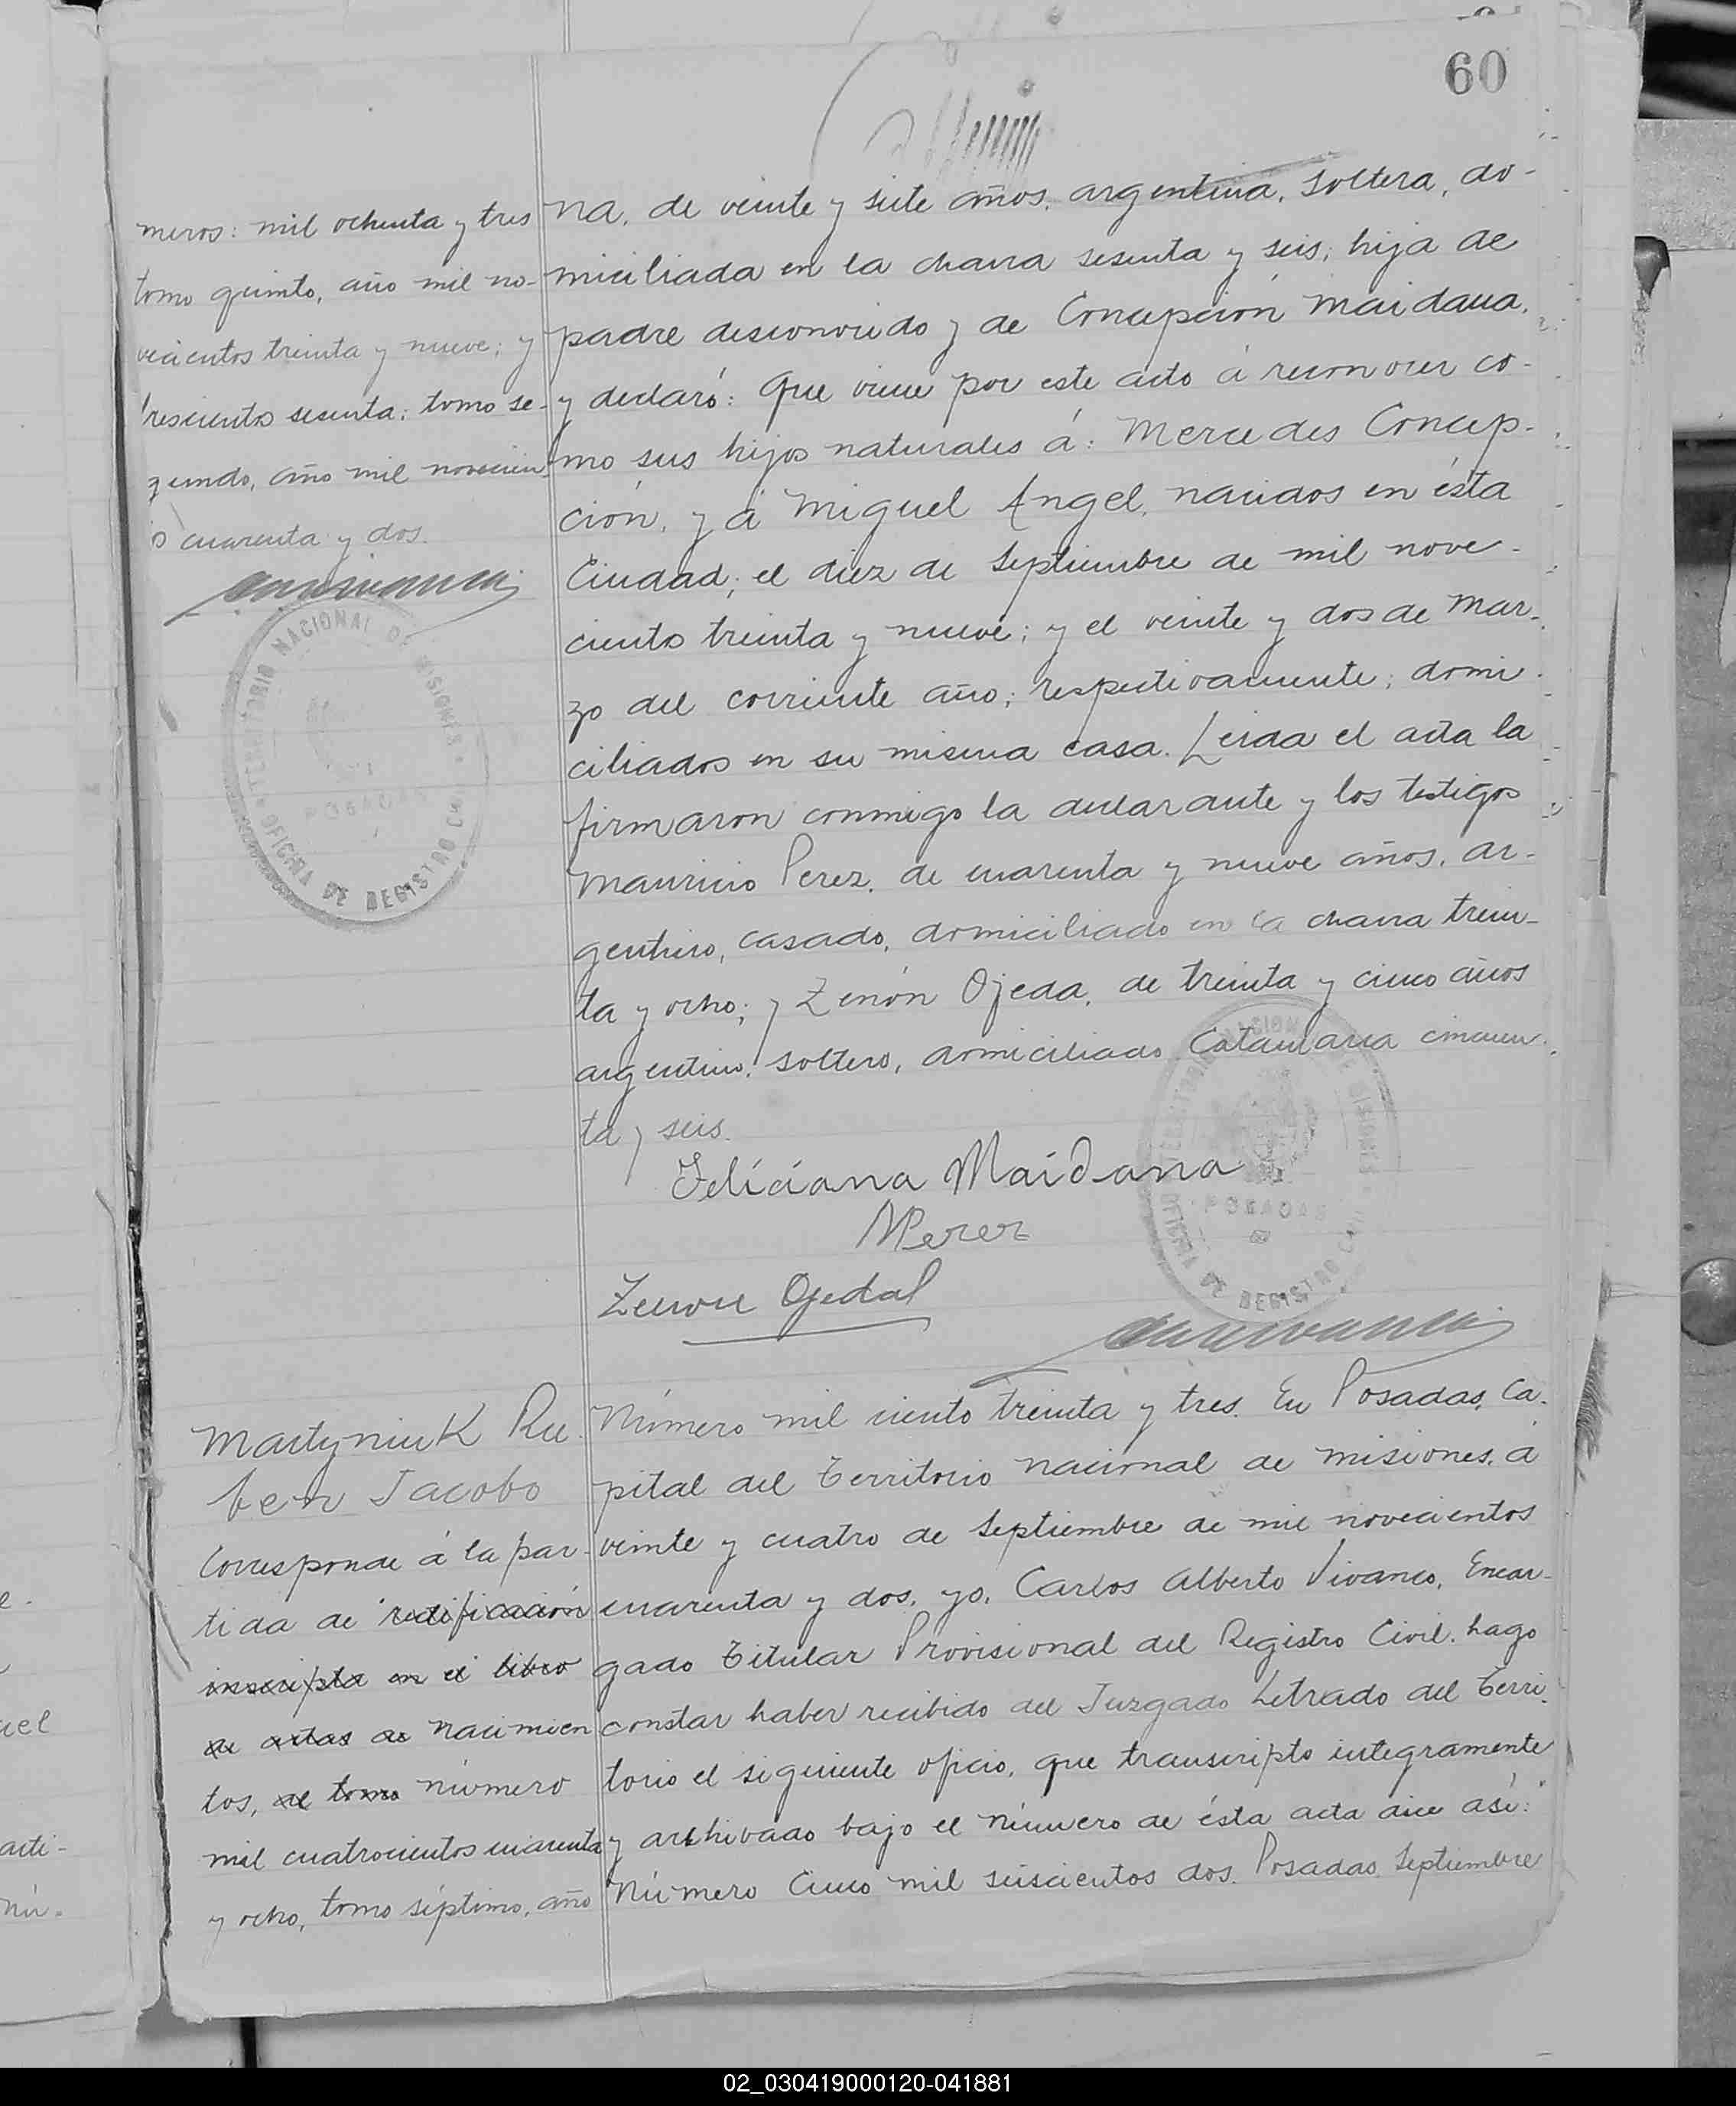 60
meros: mil ochenta y tres
tomo quinto, año mil no-
vecientos treinta y nueve; y
resciento sesenta; tomo se-
gundo, año mil novecien
o cuarenta y dos.
TERRITORIO NACIONAL DE MISIONES
POSADAS
OFICINA DE REGISTRO CIVIL
na, de veinte y siete años, argentina, soltera, do-
miciliada en la chacra sesenta y seis; hija de
padre desconocido y de Concepción Maidana,
y declaró: Que viene por este acto á reconocer co-
mo sus hijos naturales á: Mercedes Concep-
ción, y á Miguel Angel, nacidos en ésta
Ciudad; el diez de Septiembre de mil nove-
ciento treinta y nueve; y el veinte y dos de Mar-
zo del corriente año; respectivamente; domi-
ciliados en su misma casa. Leida el acta la
firmaron conmigo la declarante y los testigos
Mauricio Perez, de cuarenta y nueve años, ar-
gentino, casado, domiciliado en la chacra trein-
ta y ocho; y Zenón Ojeda, de treinta y cinco años
argentino, soltero, domiciliado Catamarca cincuen-
ta y seis.
Feliciana Maidana
MPerez
Zenon Ojeda
TERRITORIO NACIONAL DE MISIONES
POSADAS
OFICINA DE REGISTRO CIVIL
Martyniuk Ru-
ben Jacobo
Corresponde á la par-
tida de rectificación
inscripta en el libro
de actas de nacimien
tos, del tomo número
mil cuatrocientos cuarenta
y ocho, tomo séptimo, año
Número mil ciento treinta y tres. En Posadas, Ca-
pital del Territorio Nacional de Misiones, á
veinte y cuatro de Septiembre de mil novecientos
cuarenta y dos, yo, Carlos Alberto Vivanco, Encar-
gado Titular Provisional del Registro Civil, hago
constar haber recibido del Juzgado Letrado del Terri-
torio el siguiente oficio, que transcripto integramente
y archivado bajo el número de ésta acta dice así:
Número Cinco mil seiscientos dos. Posadas, Septiembre
02_030419000120-041881